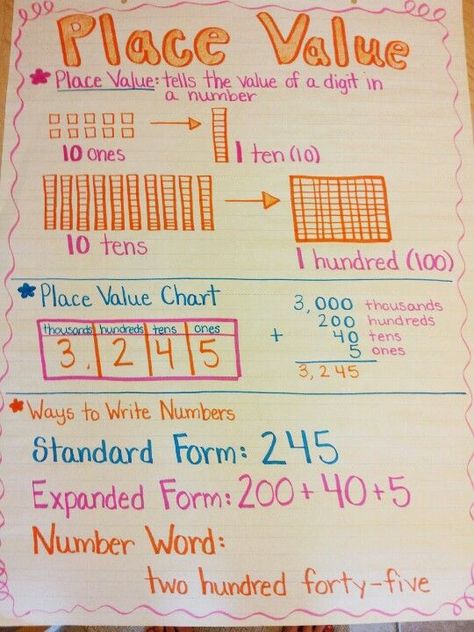 Place Value
Place Value: tells the value of a digit in
a number
10 ones
1 ten (10)
10 tens
1 hundred (100)
Place Value Chart
thousands hundreds tens ones
3, 2 4 5
3,000 thousands
200 hundreds
+ 40 tens
5 ones
3,245
Ways to Write Numbers
Standard Form: 245
Expanded Form: 200+40+5
Number Word:
two hundred forty-five